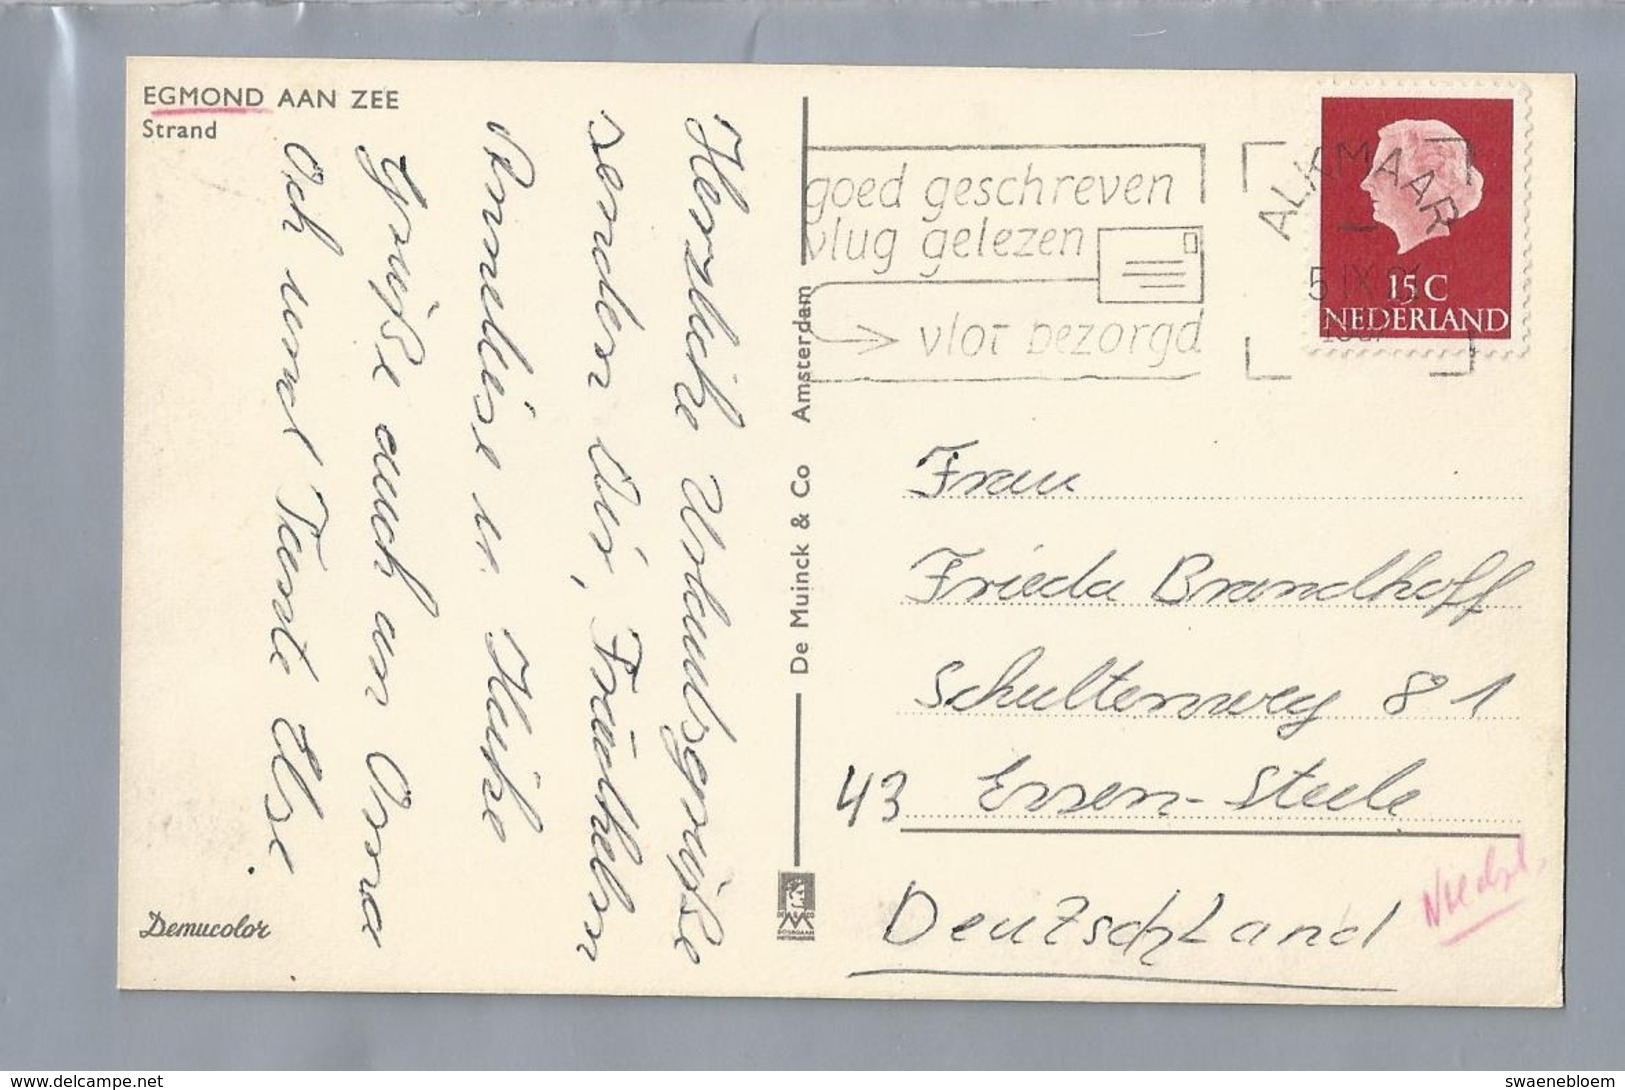 EGMOND AAN ZEE
Strand
Herzliche Urlaubsgrüße
senden Dir, Wilhelm
Anneliese u. Heike
Grüße auch an Oma
Och und Tante Else.
Demucolor
De Muinck & Co Amsterdam
goed geschreven
vlug gelezen
vlot bezorgd
ALKMAAR
5 IX
15 C
NEDERLAND
Frau
Frieda Brandhoff
Schultenweg 81
43 Essen-Steele
Deutschland
Niedrl.
www.delcampe.net
swaenebloem